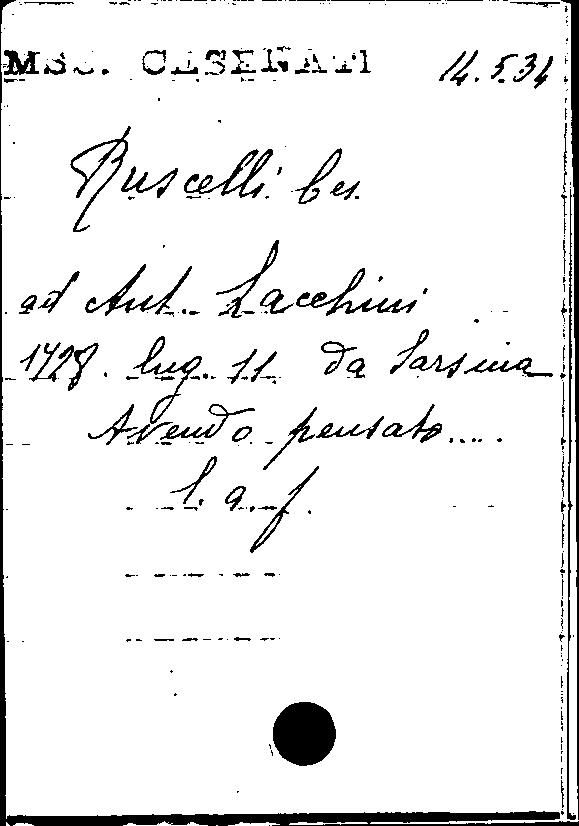 MSS. CESENATI 14.5.34
Ruscelli Ces.
ad Ant. Zacchini
1728. lug. 11 da Sarsina
Avendo pensato.....
l. a. f.